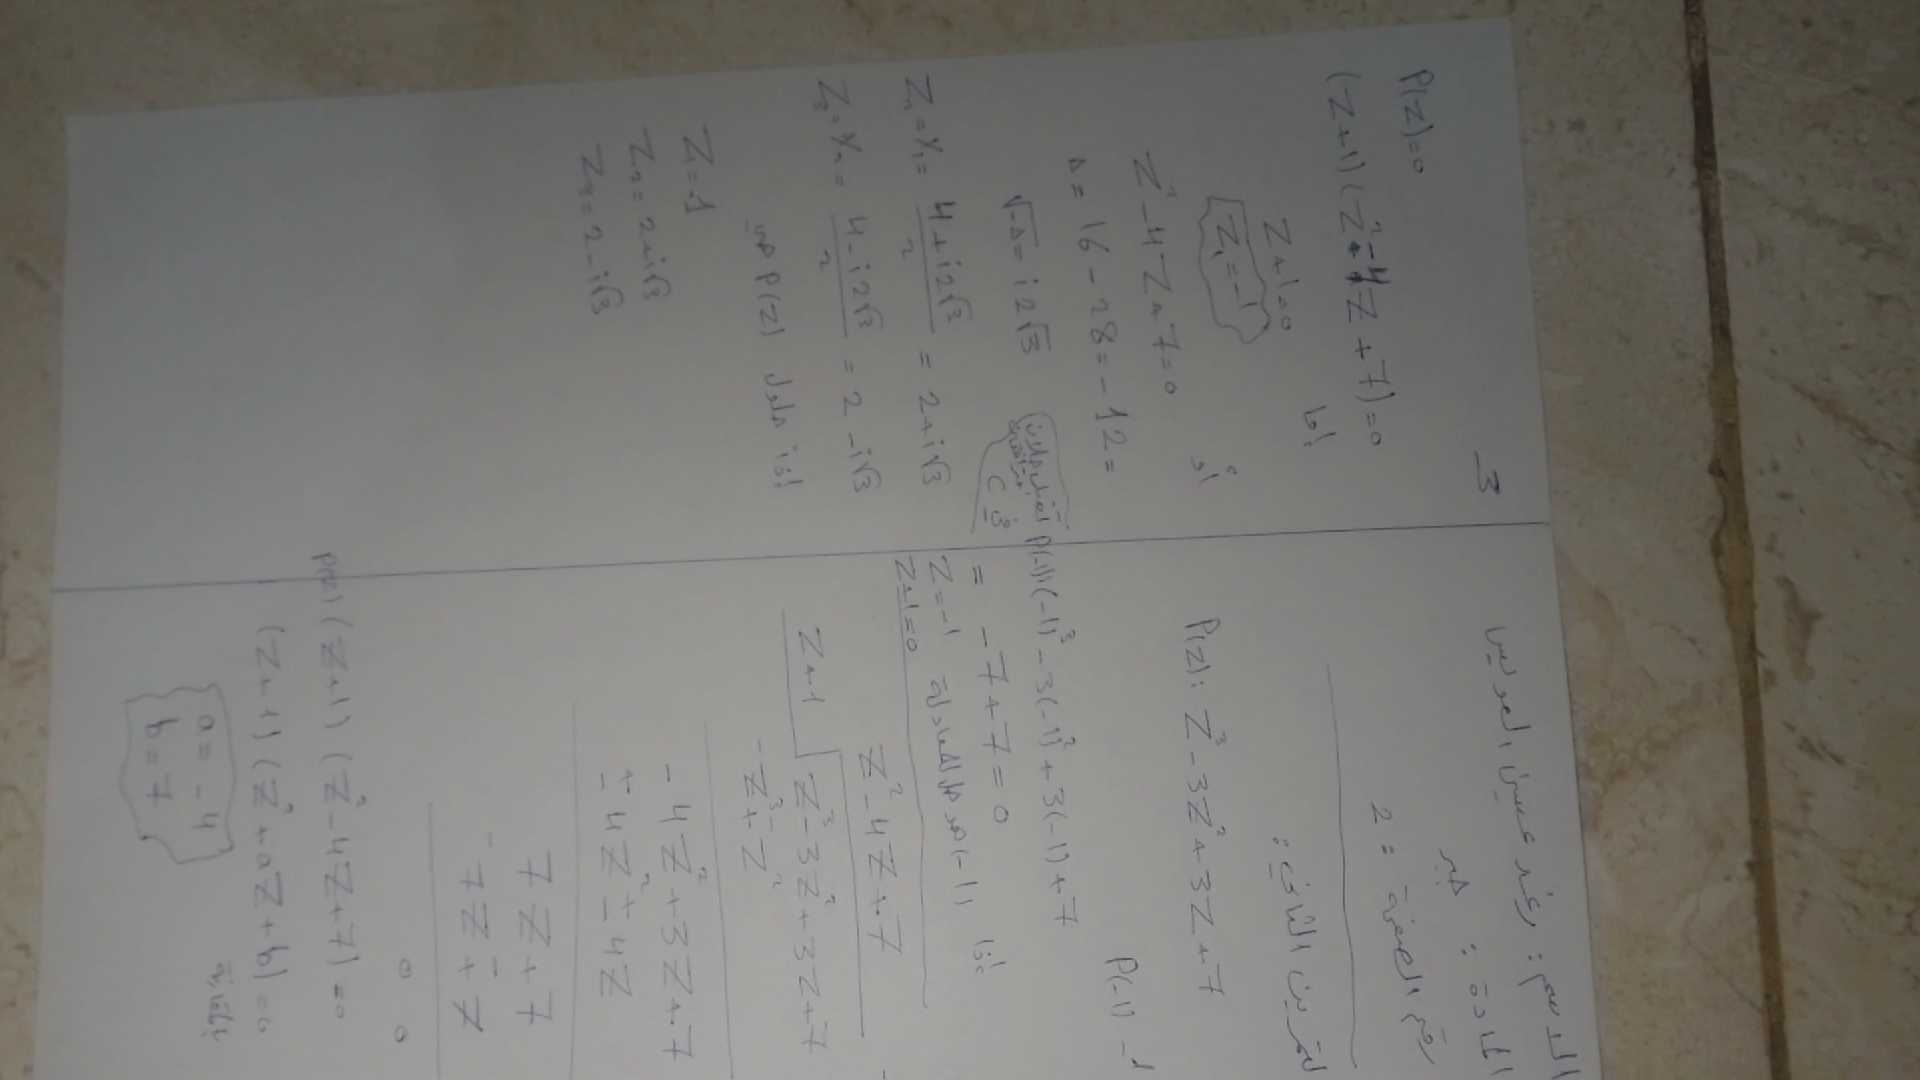 الاسم: رغد عيسى العويس
المادة: جبر
رقم الصفحة: 2
التمرين الثاني:
P(z): z³ - 3z² + 3z + 7
P(-1) -1
P(-1)(-1)³ - 3(-1)² + 3(-1) + 7
= -7 + 7 = 0
إذا (-1) هو حل للمعادلة z = -1
z+1=0
z² - 4z + 7
z+1 z³ - 3z² + 3z + 7
- z³ + z²
-4z² + 3z + 7
-4z² - 4z
7z + 7
7z + 7
0 0
P(z) (z+1) (z² - 4z + 7) = 0
(z+1) (z² + az + b) = 0
بالمقارنة
a = -4
b = 7
3-
P(z) = 0
(z+1) (z² - 4z + 7) = 0
إما
z+1=0
z₁ = -1
أو
z² - 4z + 7 = 0
Δ = 16 - 28 = -12 =
√-Δ = i2√3
C في
z₂ = y₁ = 4+i2√3 / 2 = 2+i√3
z₃ = y₂ = 4-i2√3 / 2 = 2-i√3
إذا حلول P(z) هي
z₁ = -1
z₂ = 2+i√3
z₃ = 2-i√3